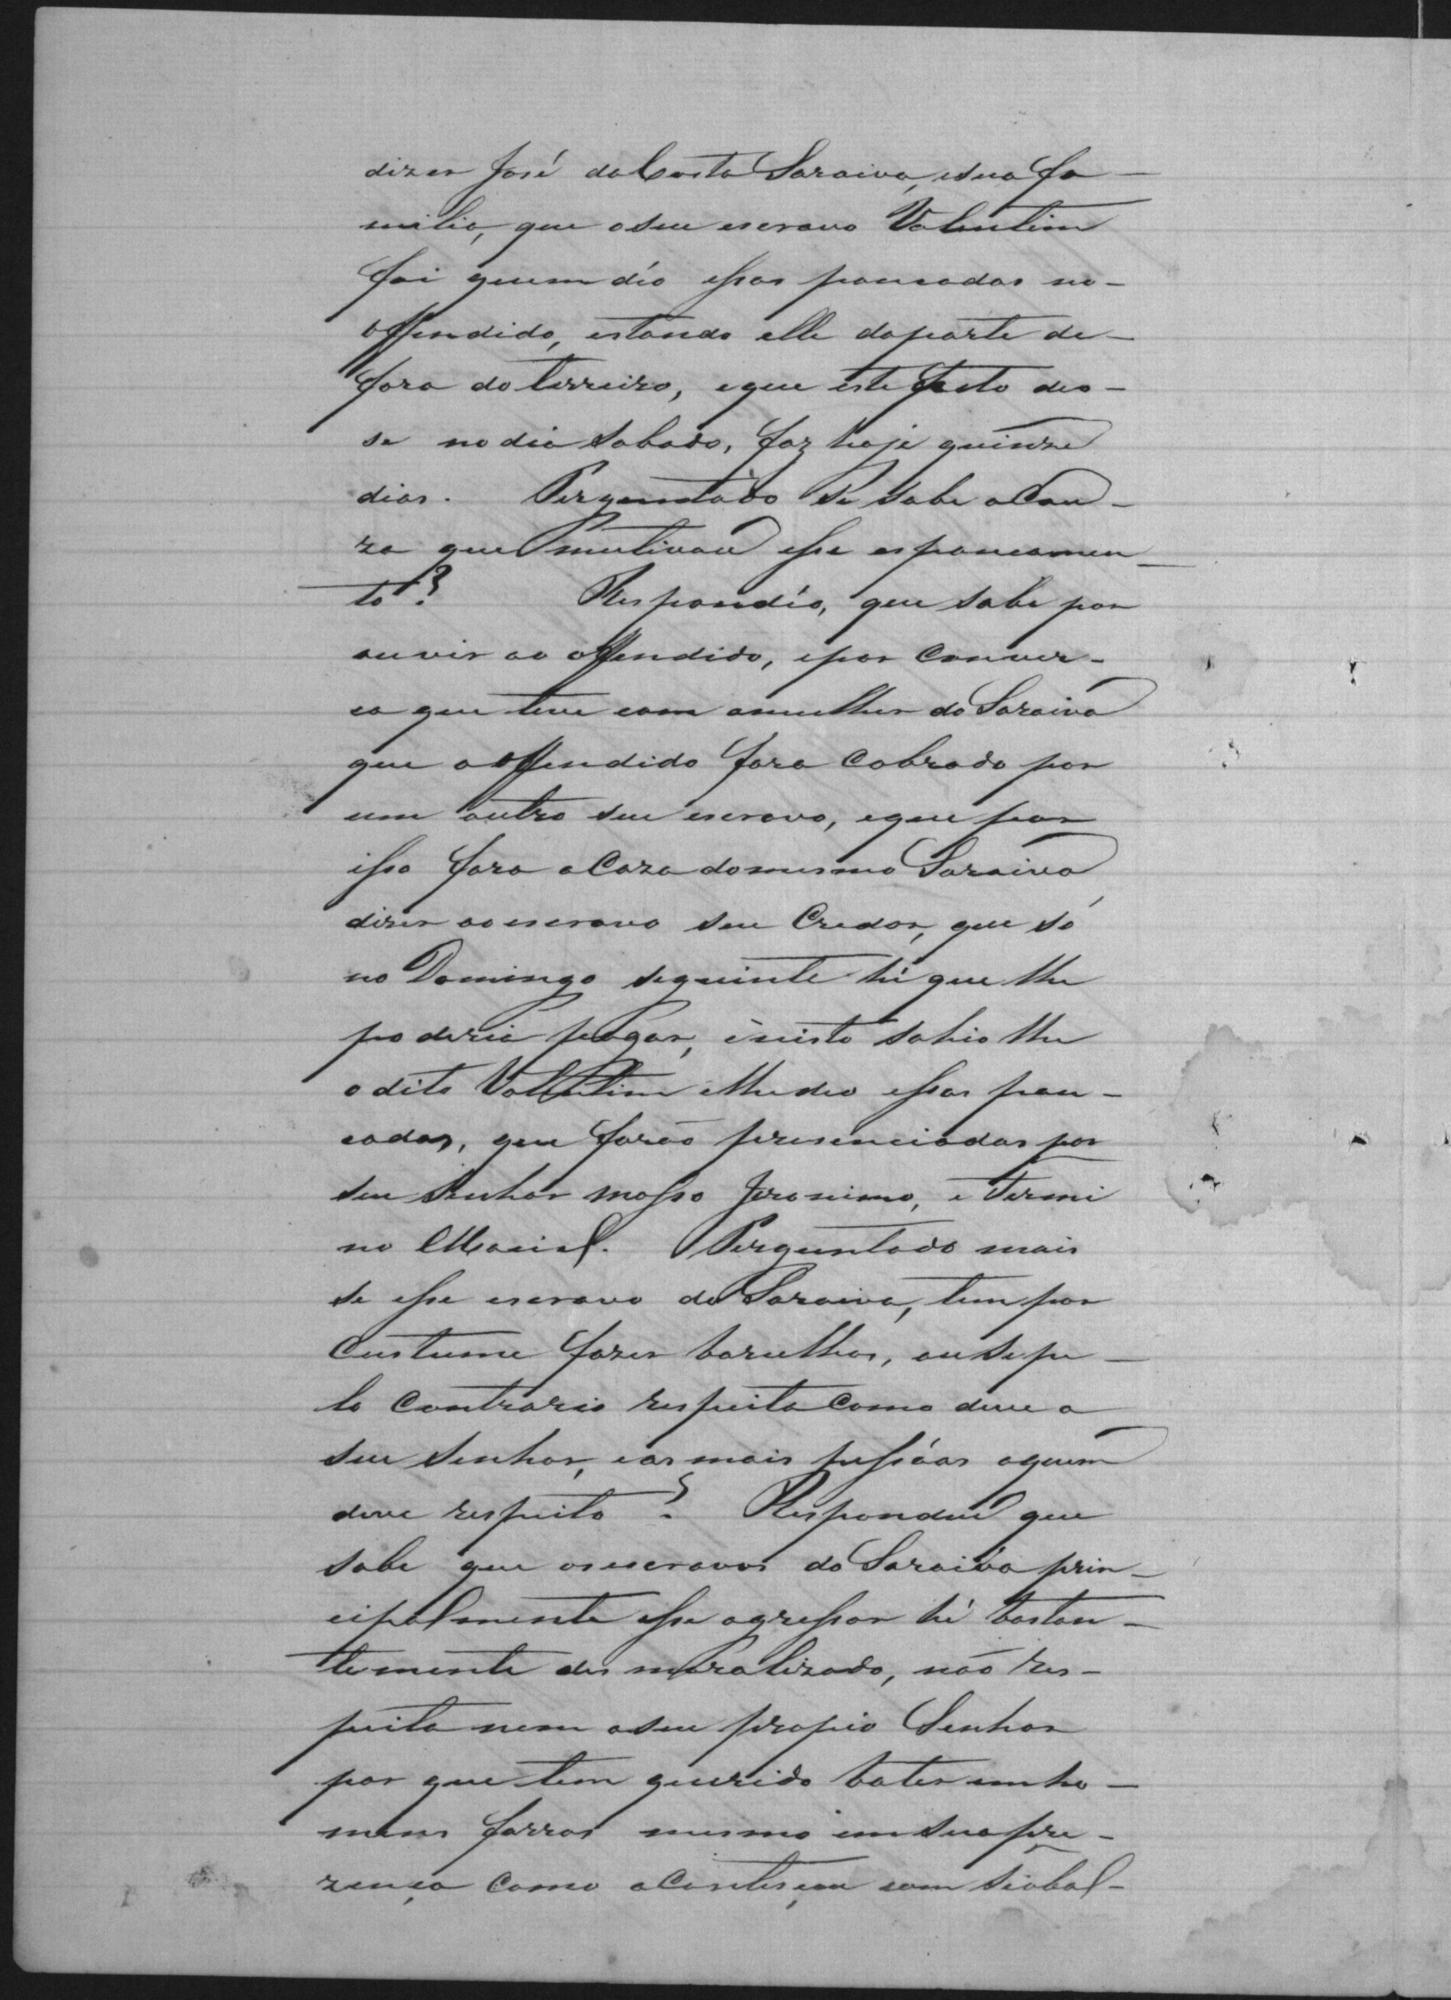 dizer José da Costa Saraiva, e sua fa-
milia, que o seu escravo Valentim
foi quem dêo essas pancadas no
offendido, estando elle da parte de-
fora do terreiro, e que este facto deo-
se no dia Sabado, faz hoje quinze
dias. Perguntado se sabe a Cau-
za que mutivou esse espancamen-
to? Respondêo, que sabe por
ouvir ao offendido, e por Conver-
ca que teve com a mulher do Saraiva
que o offendido fora Cobrado por
um outro seu escravo, e que por
isso fora a Caza do mesmo Saraiva
dizer ao escravo seu Credor, que só
no Domingo seguinte hé que lhe
poderia pagar, e nisto sahio lhe
o dito Valentim e lhe deo essas pan-
cadas, que forão presenciadas por
seu Senhor mosso Jeronimo, e Firmi
no Maciel. Perguntado mais
se esse escravo do Saraiva, tem por
Custume fazer barulhos, ou se pe-
lo Contrario respeita Como deve a
seu Senhor, e as mais pessôas a quem
deve respeito? Respondeu que
sabe que os escravos do Saraiva prin-
cipalmente esse agressor hé bastan-
temente desmoralizado, não res-
peita nem a seu propio Senhor
por que tem querido bater em ho-
mens forros mesmo em sua pre-
zença Como aContesçeu com